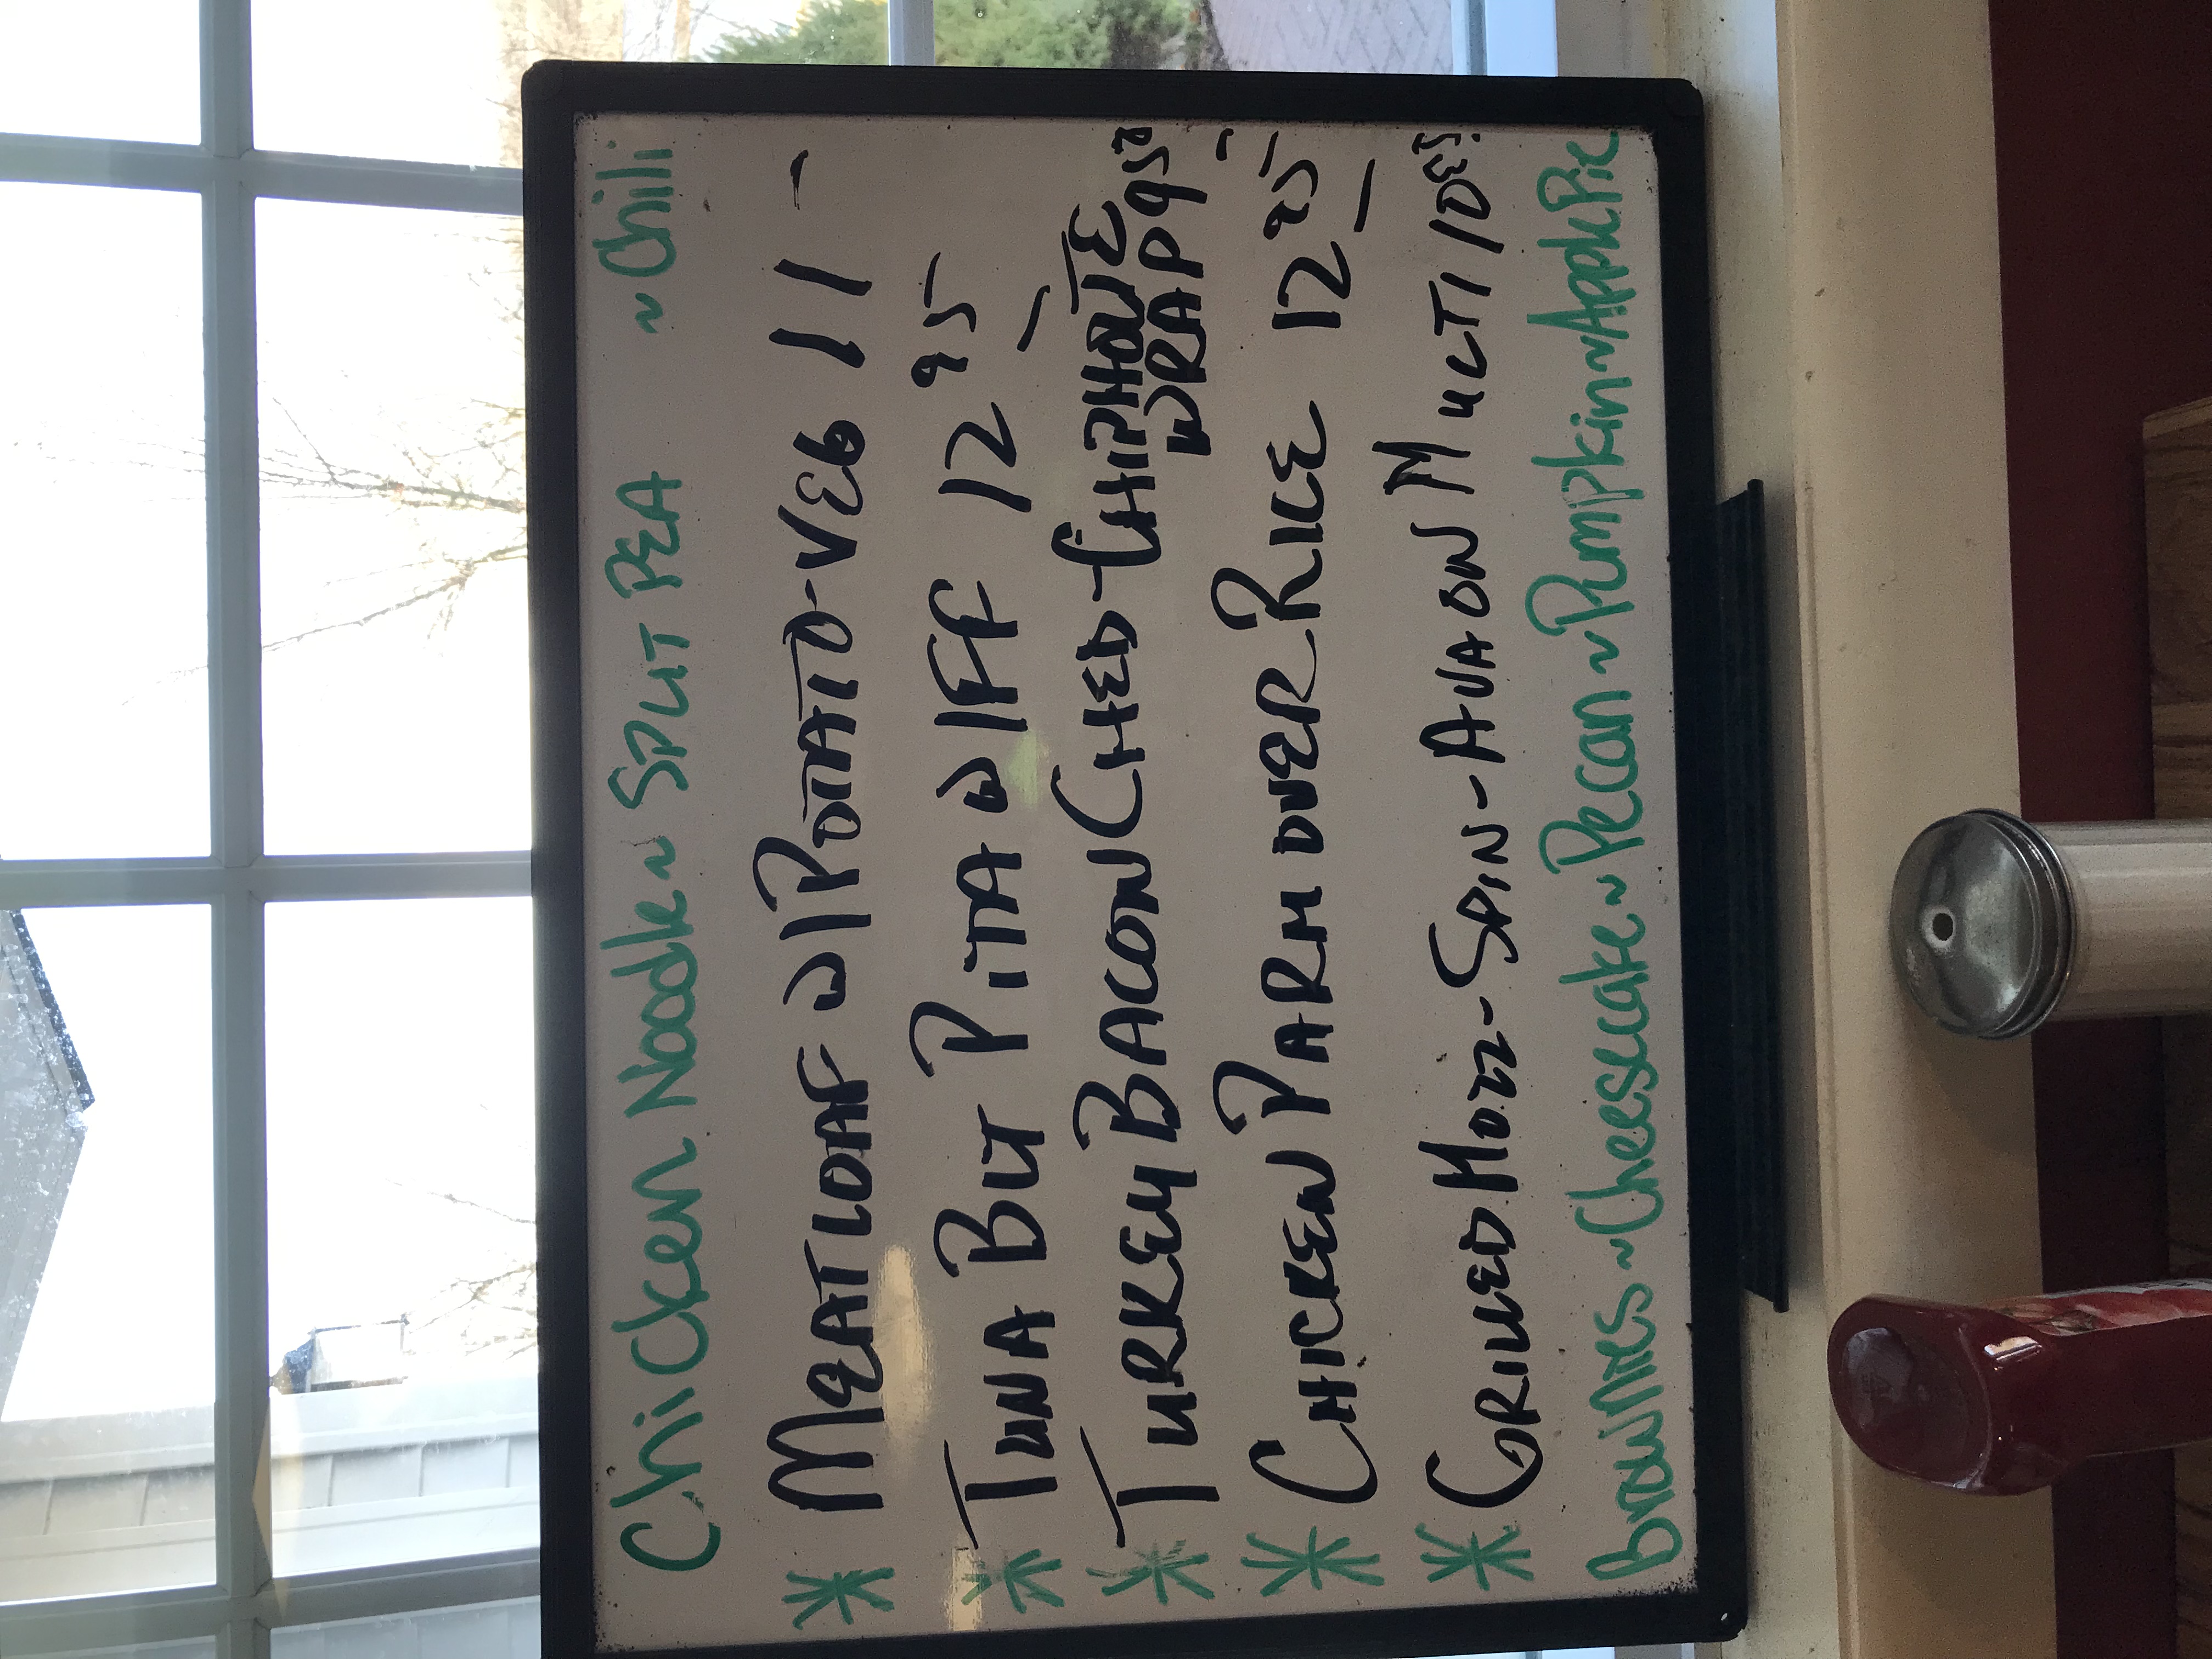 Chicken Noodle ~ SPLIT PEA ~ Chili
* MEATLOAF W/POTATO-VEG 11 -
* TUNA BUT PITA W/FF 12 95
* TURKEY BACON CHED-CHIPHOLTE
WRAP 9 50
* CHICKEN PARM OVER RICE 12 95
* GRILLED MOZZ-SPIN-AVA ON MULTI 10 95
Brownies ~ Cheesecake ~ Pecan ~ Pumpkin ~ Apple Pie